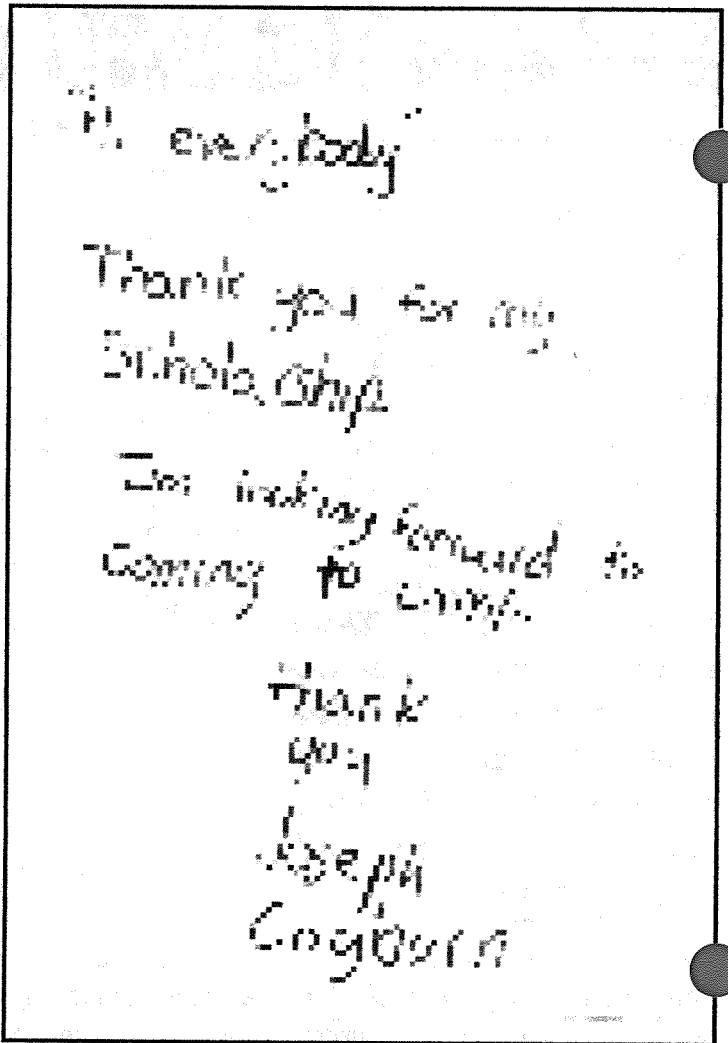 Hi everybody
Thank you for my
Scholarship
I'm looking forward to
Coming to camp.
thank
you
Joseph